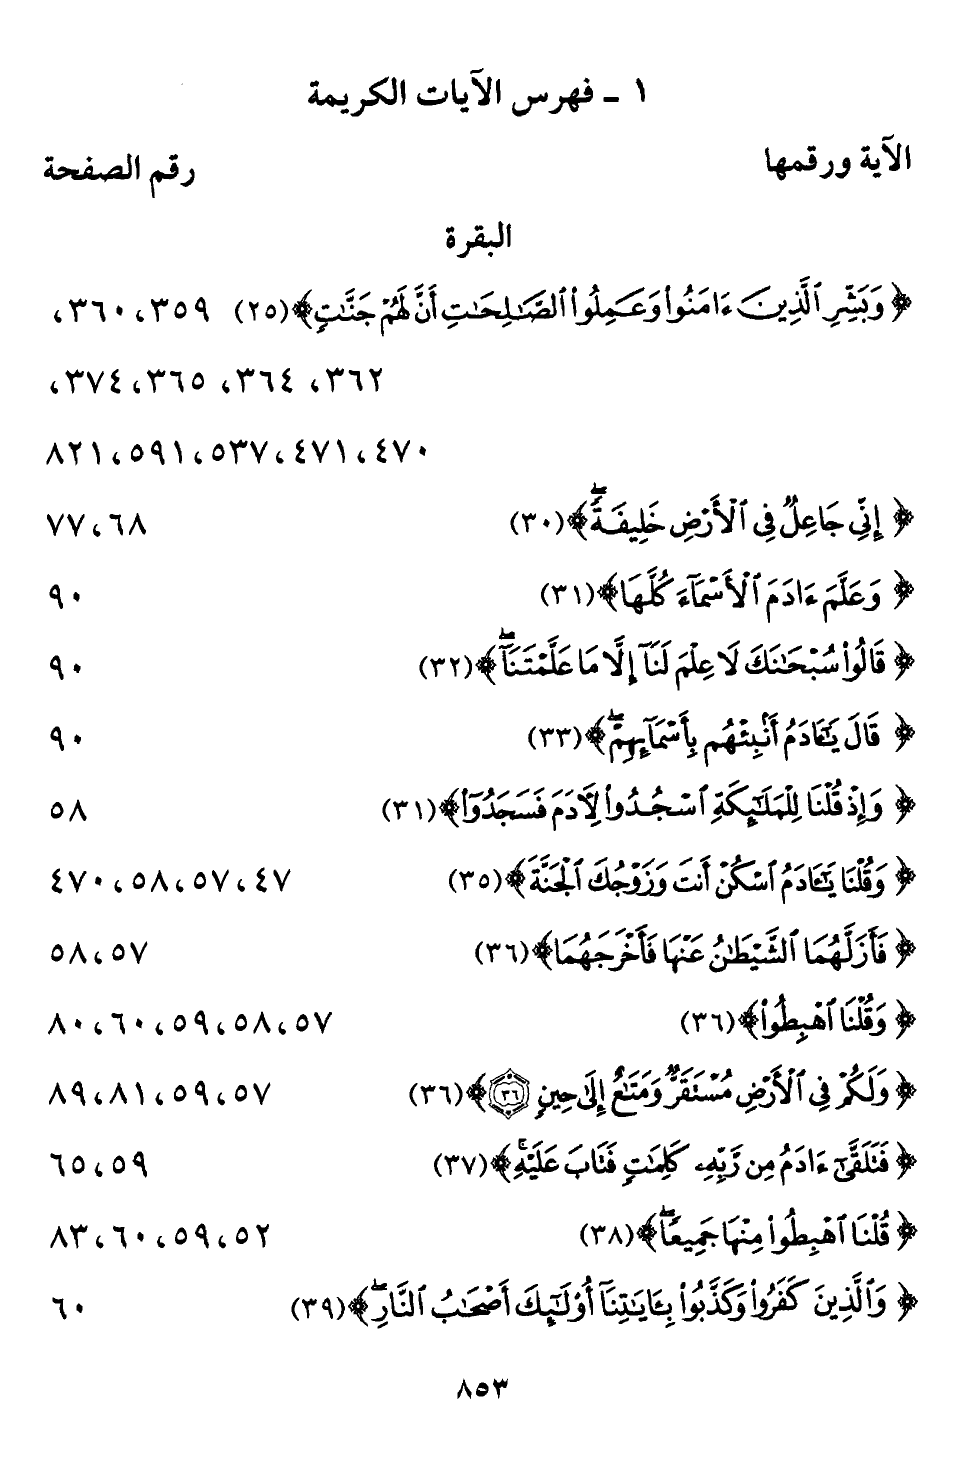 ١ ـ فهرس الآيات الكريمة
الآية ورقمها رقم الصفحة
البقرة
﴿وَبَشِّرِ ٱلَّذِينَ ءَامَنُوا۟ وَعَمِلُوا۟ ٱلصَّـٰلِحَـٰتِ أَنَّ لَهُمْ جَنَّـٰتٍ﴾ (٢٥) ٣٥٩، ٣٦٠،
٣٦٢، ٣٦٤، ٣٦٥، ٣٧٤،
٤٧٠، ٤٧١، ٥٣٧، ٥٩١، ٨٢١
﴿إِنِّى جَاعِلٌ فِى ٱلْأَرْضِ خَلِيفَةً ۖ﴾ (٣٠) ٦٨، ٧٧
﴿وَعَلَّمَ ءَادَمَ ٱلْأَسْمَآءَ كُلَّهَا﴾ (٣١) ٩٠
﴿قَالُوا۟ سُبْحَـٰنَكَ لَا عِلْمَ لَنَآ إِلَّا مَا عَلَّمْتَنَآ ۖ﴾ (٣٢) ٩٠
﴿قَالَ يَـٰٓـَٔادَمُ أَنۢبِئْهُم بِأَسْمَآئِهِمْ ۖ﴾ (٣٣) ٩٠
﴿وَإِذْ قُلْنَا لِلْمَلَـٰٓئِكَةِ ٱسْجُدُوا۟ لِـَٔادَمَ فَسَجَدُوٓا۟﴾ (٣١) ٥٨
﴿وَقُلْنَا يَـٰٓـَٔادَمُ ٱسْكُنْ أَنتَ وَزَوْجُكَ ٱلْجَنَّةَ﴾ (٣٥) ٤٧، ٥٧، ٥٨، ٤٧٠
﴿فَأَزَلَّهُمَا ٱلشَّيْطَـٰنُ عَنْهَا فَأَخْرَجَهُمَا﴾ (٣٦) ٥٧، ٥٨
﴿وَقُلْنَا ٱهْبِطُوا۟﴾ (٣٦) ٥٧، ٥٨، ٥٩، ٦٠، ٨٠
﴿وَلَكُمْ فِى ٱلْأَرْضِ مُسْتَقَرٌّ وَمَتَـٰعٌ إِلَىٰ حِينٍ ۝٣٦﴾ (٣٦) ٥٧، ٥٩، ٨١، ٨٩
﴿فَتَلَقَّىٰٓ ءَادَمُ مِن رَّبِّهِۦ كَلِمَـٰتٍ فَتَابَ عَلَيْهِ ۚ﴾ (٣٧) ٥٩، ٦٥
﴿قُلْنَا ٱهْبِطُوا۟ مِنْهَا جَمِيعًا ۖ﴾ (٣٨) ٥٢، ٥٩، ٦٠، ٨٣
﴿وَٱلَّذِينَ كَفَرُوا۟ وَكَذَّبُوا۟ بِـَٔايَـٰتِنَآ أُو۟لَـٰٓئِكَ أَصْحَـٰبُ ٱلنَّارِ ۖ﴾ (٣٩) ٦٠
٨٥٣